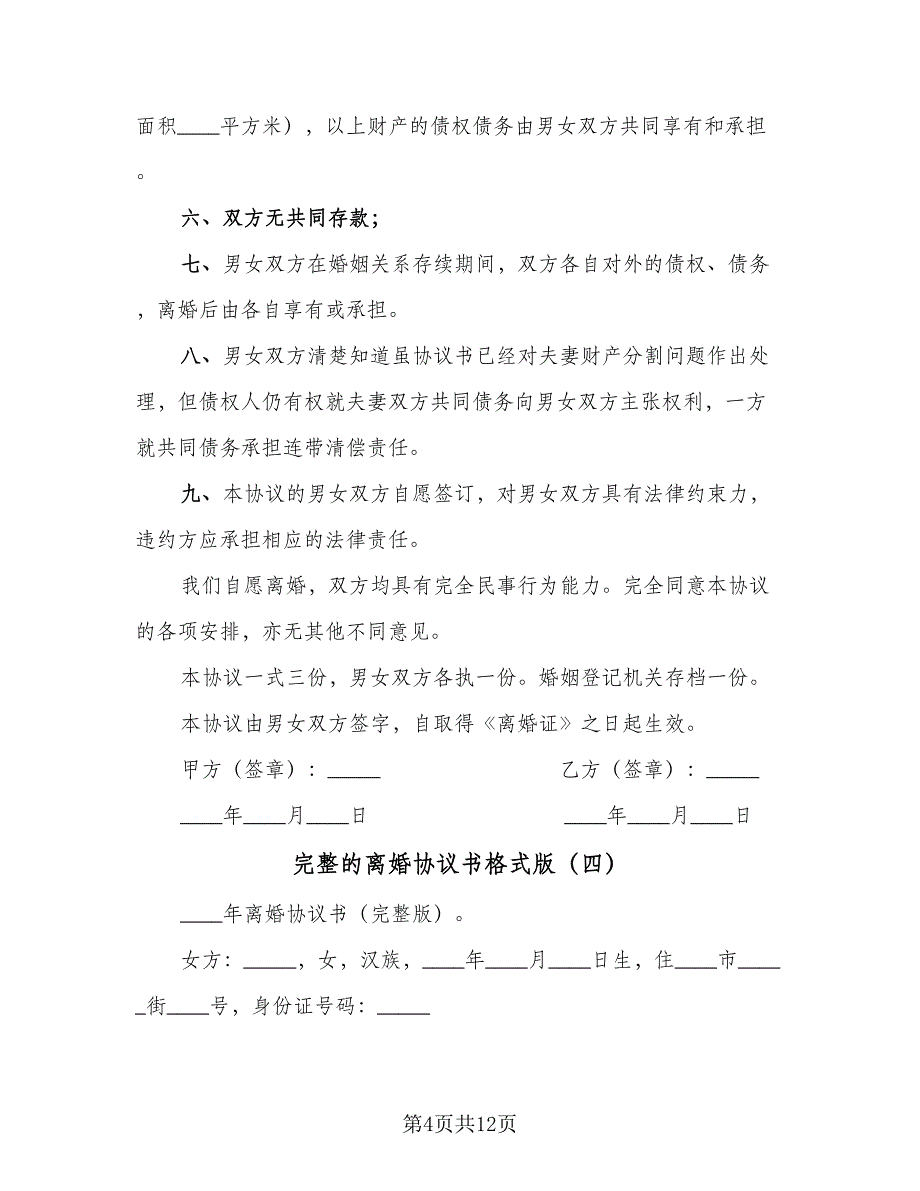 面积____平方米），以上财产的债权债务由男女双方共同享有和承担
。
六、双方无共同存款；
七、男女双方在婚姻关系存续期间，双方各自对外的债权、债务
，离婚后由各自享有或承担。
八、男女双方清楚知道虽协议书已经对夫妻财产分割问题作出处
理，但债权人仍有权就夫妻双方共同债务向男女双方主张权利，一方
就共同债务承担连带清偿责任。
九、本协议的男女双方自愿签订，对男女双方具有法律约束力，
违约方应承担相应的法律责任。
我们自愿离婚，双方均具有完全民事行为能力。完全同意本协议
的各项安排，亦无其他不同意见。
本协议一式三份，男女双方各执一份。婚姻登记机关存档一份。
本协议由男女双方签字，自取得《离婚证》之日起生效。
甲方（签章）：_____ 乙方（签章）：_____
____年____月____日 ____年____月____日
完整的离婚协议书格式版（四）
____年离婚协议书（完整版）。
女方：_____，女，汉族，____年____月____日生，住____市____
_街____号，身份证号码：_____
第4页共12页